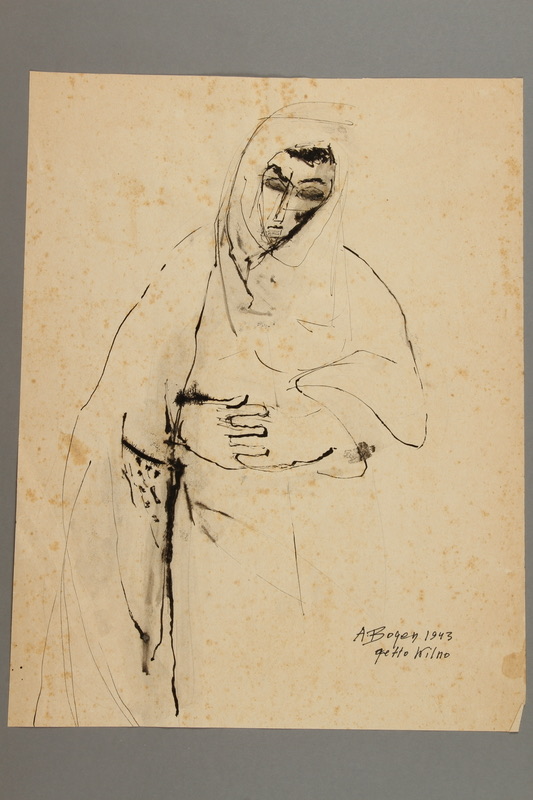 A Bogen 1943
getto Wilno